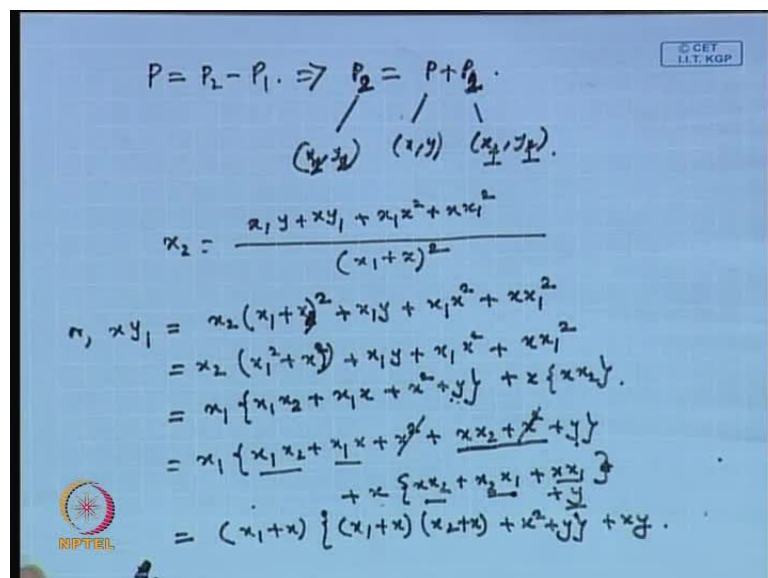 © CET
I.I.T. KGP
P = P₂ − P₁. ⇒ P₂ = P + P₁.
(x₂, y₂) (x, y) (x₁, y₁).
x₂ = (x₁y + xy₁ + x₁x² + xx₁²) / (x₁+x)²
xy₁ = x₂(x₁+x)² + x₁y + x₁x² + xx₁²
= x₂(x₁²+x²) + x₁y + x₁x² + xx₁²
= x₁{x₁x₂ + x₁x + x² + y} + x{xx₂}.
= x₁{x₁x₂ + x₁x + x² + xx₂ + x² + y}
+ x{xx₂ + x₂x₁ + xx₁ + y}
= (x₁+x){(x₁+x)(x₂+x) + x² + y} + xy.
NPTEL